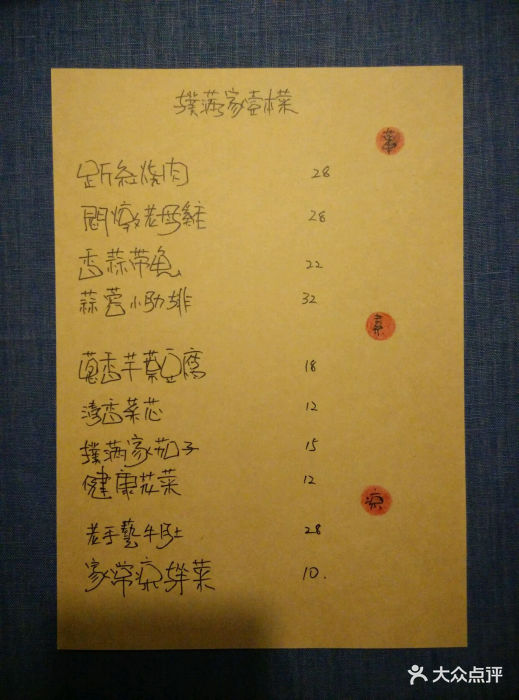 撲满家壹桌菜
荤
红烧肉 28
燉老母雞 28
香蒜带魚 22
蒜蓉小肋排 32
素
葱香芋艿豆腐 18
清香菜芯 12
撲满家茄子 15
健康花菜 12
凉
老手藝牛肚 28
家常凉拌菜 10.
大众点评